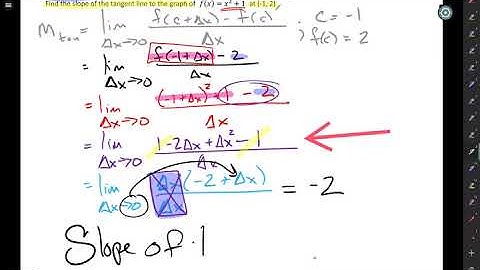 Find the slope of the tangent line to the graph of f(x) = x² + 1 at (-1, 2)
m tan = lim Δx→0 f(c+Δx) - f(c) / Δx ; c = -1
f(c) = 2
= lim Δx→0 f(-1+Δx) - 2 / Δx
= lim Δx→0 (-1+Δx)² + 1 - 2 / Δx
= lim Δx→0 1 - 2Δx + Δx² - 1 / Δx
= lim Δx→0 Δx(-2+Δx) / Δx = -2
Slope of